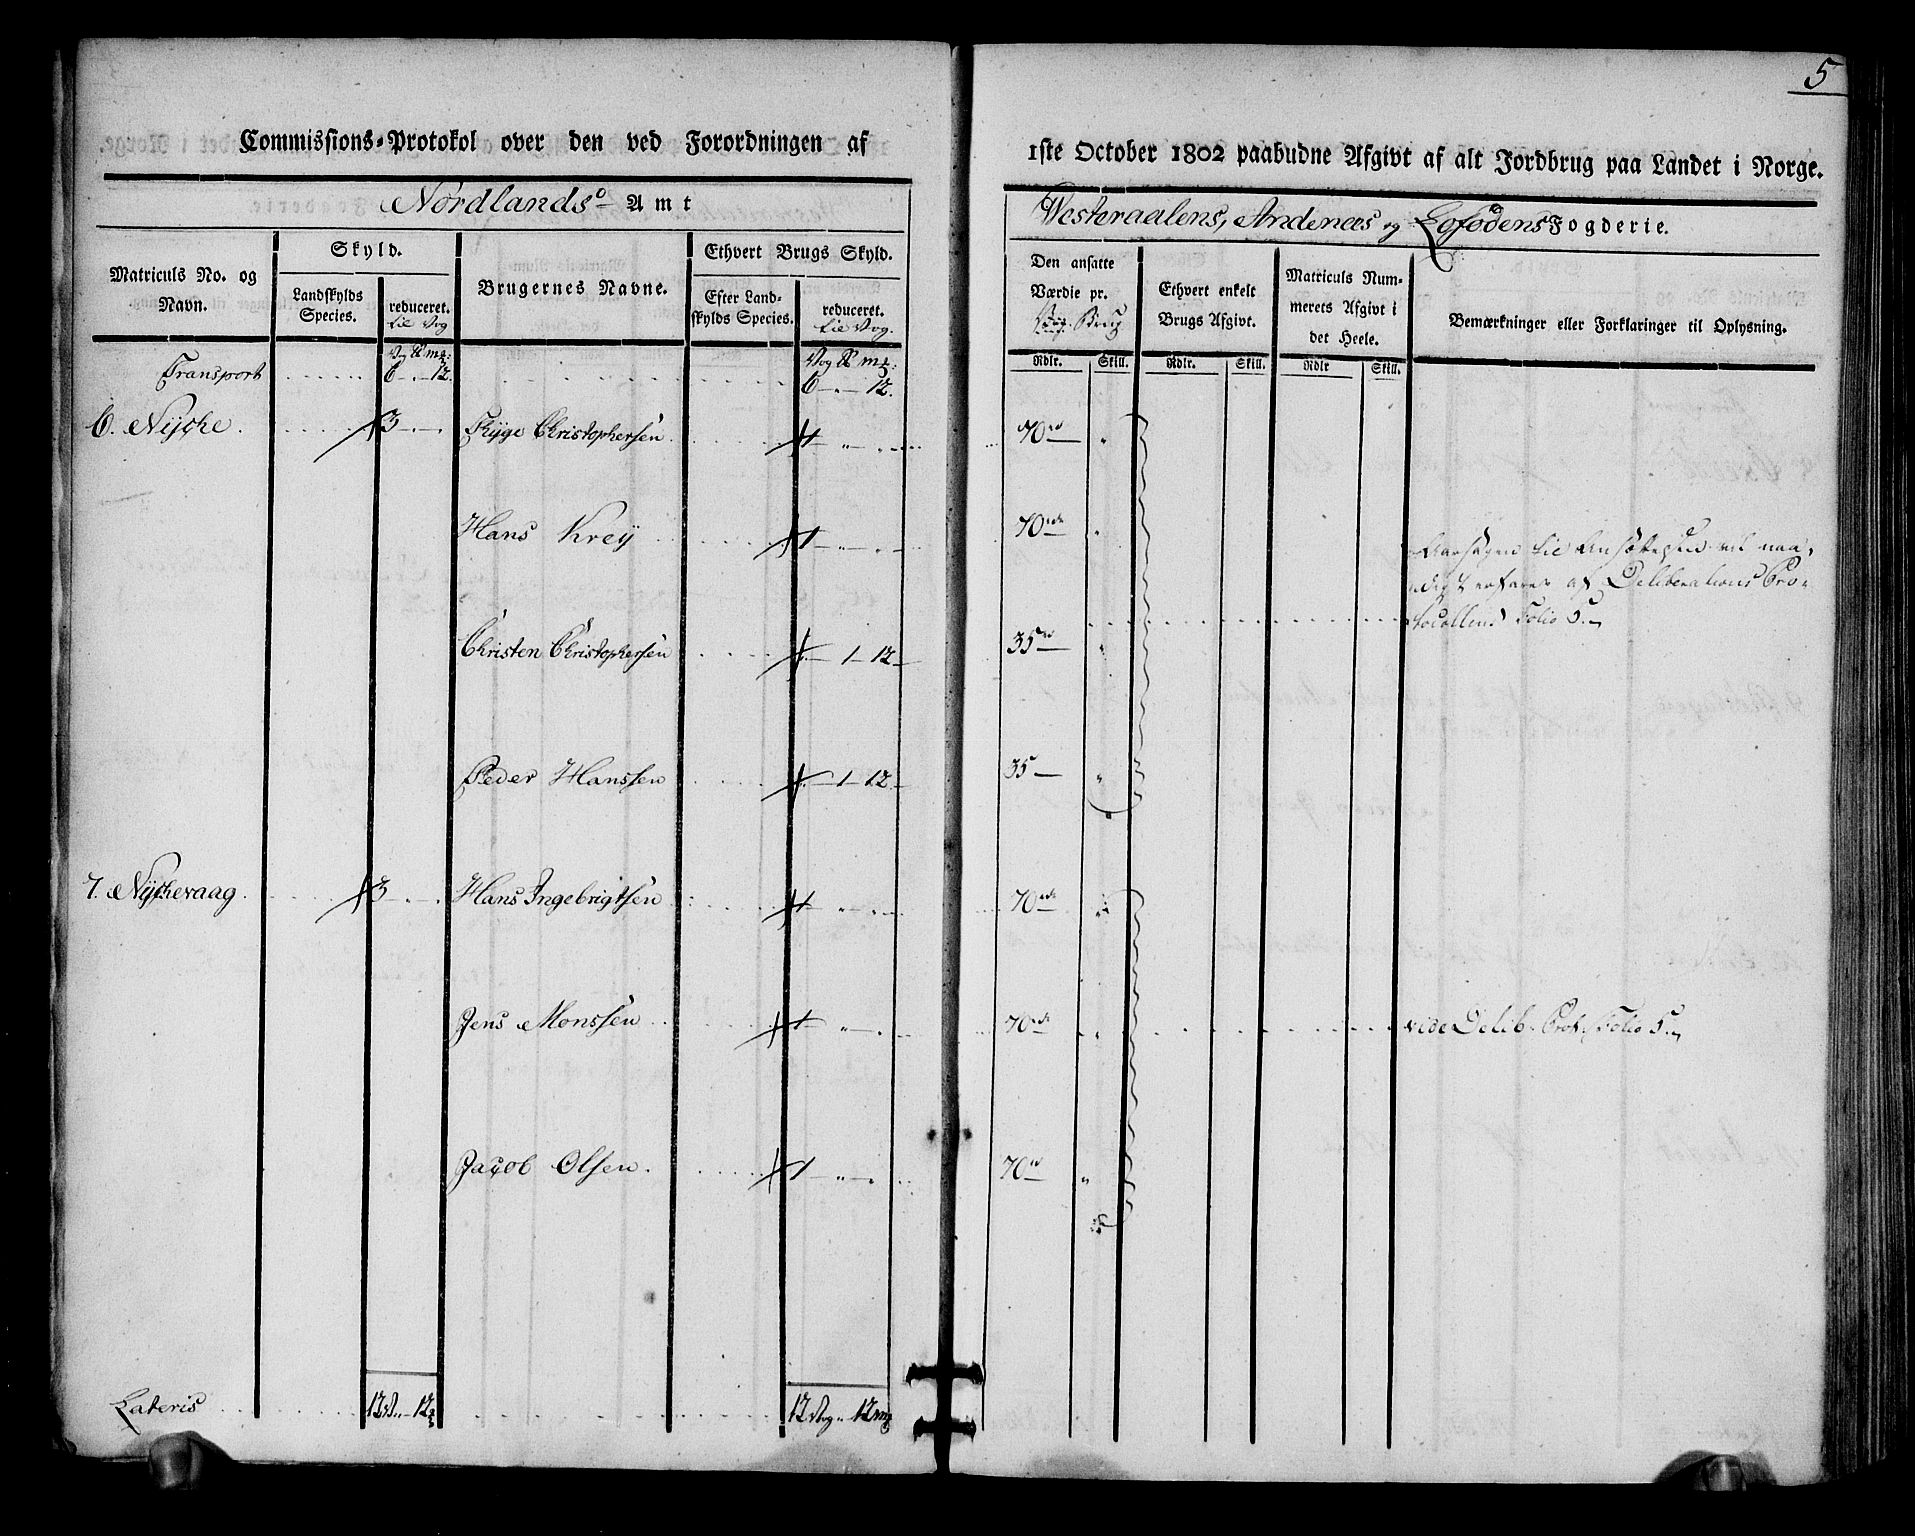 5
Commissions-Protokol over den ved Forordningen af
1ste October 1802 paabudne Afgivt af alt Jordbrug paa Landet i Norge.
Nordlands Amt
Westeraalens, Andenæs og Lofodens Fogderie.
Matriculs No. og Navn.
Skyld.
Landskylds Species.
reduceret. til Vog
Brugernes Navne.
Ethvert Brugs Skyld.
Efter Landskylds Species.
reduceret. til Vog.
Den ansatte Værdie pr. Brug
Rdlr. Skill.
Ethvert enkelt Brugs Afgivt.
Rdlr. Skill.
Matriculs Nummerets Afgivt i det Heele.
Rdlr Skill.
Bemærkninger eller Forklaringer til Oplysning.
Vog ℔ mk: Vog ℔ mk:
Transport 6 - " - 12. 6 - " - 12.
6. Nÿche. 3 - " - Tÿge Christophersen 1 - " - " - 70 "
Hans Kreÿ 1 - " - " - 70 "
til
af Deliberations Pro-
tocollens Folio 5.
Christen Christophersen " - 1 - 12 - 35 "
Peder Hanssen " - 1 - 12 - 35 "
7. Nÿchevaag 3 - " - Hans Ingebrigtsen 1 - " - " - 70 "
Jens Monssen 1 - " - " - 70 " vide Delib. Prot. Folio 5.
Jacob Olsen. 1 - " - " - 70 "
Lateris 12 V " - 12 12 Vog " 12 mk